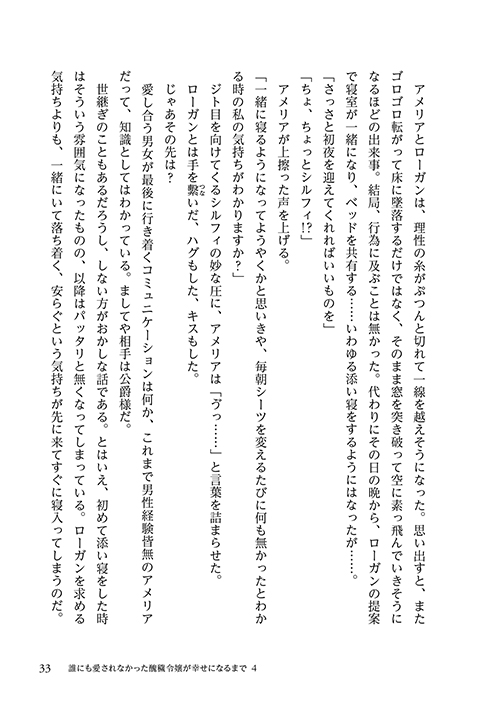 アメリアとローガンは、理性の糸がぷつんと切れて一線を越えそうになった。思い出すと、また
ゴロゴロ転がって床に墜落するだけではなく、そのまま窓を突き破って空に素っ飛んでいきそうに
なるほどの出来事。結局、行為に及ぶことは無かった。代わりにその日の晩から、ローガンの提案
で寝室が一緒になり、ベッドを共有する……いわゆる添い寝をするようにはなったが……。
「さっさと初夜を迎えてくれればいいものを」
「ちょ、ちょっとシルフィ!?」
アメリアが上擦った声を上げる。
「一緒に寝るようになってようやくかと思いきや、毎朝シーツを変えるたびに何も無かったとわか
る時の私の気持ちがわかりますか？」
ジト目を向けてくるシルフィの妙な圧に、アメリアは「ゔっ……」と言葉を詰まらせた。
ローガンとは手を繋つないだ、ハグもした、キスもした。
じゃあその先は？
愛し合う男女が最後に行き着くコミュニケーションは何か、これまで男性経験皆無のアメリア
だって、知識としてはわかっている。ましてや相手は公爵様だ。
世継ぎのこともあるだろうし、しない方がおかしな話である。とはいえ、初めて添い寝をした時
はそういう雰囲気になったものの、以降はパッタリと無くなってしまっている。ローガンを求める
気持ちよりも、一緒にいて落ち着く、安らぐという気持ちが先に来てすぐに寝入ってしまうのだ。
33 誰にも愛されなかった醜穢令嬢が幸せになるまで 4